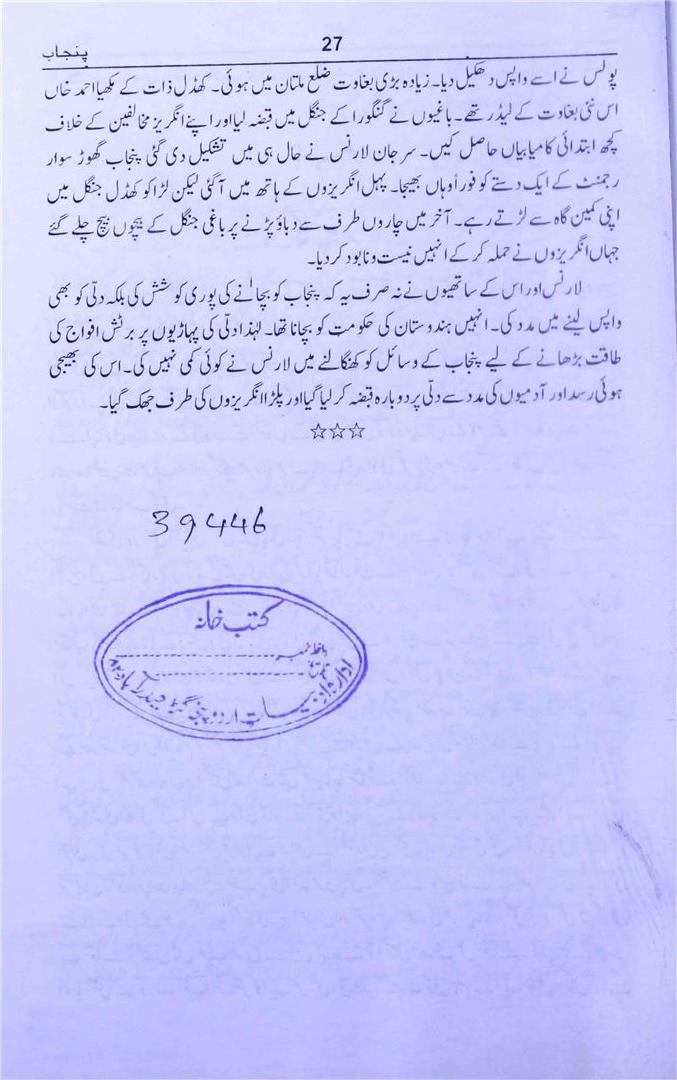 27
پنجاب
پولس نے اسے واپس دھکیل دیا۔ زیادہ بڑی بغاوت ضلع ملتان میں ہوئی۔ کھڈل ذات کے مکھیا احمد خاں
اس نئی بغاوت کے لیڈر تھے۔ باغیوں نے گنگورا کے جنگل میں قبضہ لیا اور اپنے انگریز مخالفین کے خلاف
کچھ ابتدائی کامیابیاں حاصل کیں۔ سر جان لارنس نے حال ہی میں تشکیل دی گئی پنجاب گھوڑ سوار
رجمنٹ کے ایک دستے کو فوراً وہاں بھیجا۔ پہل انگریزوں کے ہاتھ میں آ گئی لیکن لڑاکو کھڈل جنگل میں
اپنی کمین گاہ سے لڑتے رہے۔ آخر میں چاروں طرف سے دباؤ پڑنے پر باغی جنگل کے بیچوں بیچ چلے گئے
جہاں انگریزوں نے حملہ کر کے انہیں نیست و نابود کر دیا۔
لارنس اور اس کے ساتھیوں نے نہ صرف یہ کہ پنجاب کو بچانے کی پوری کوشش کی بلکہ دلّی کو بھی
واپس لینے میں مدد کی۔ انہیں ہندوستان کی حکومت کو بچانا تھا۔ لہٰذا دلی کی پہاڑیوں پر برٹش افواج کی
طاقت بڑھانے کے لیے پنجاب کے وسائل کو کھنگالنے میں لارنس نے کوئی کمی نہیں کی۔ اس کی بھیجی
ہوئی رسد اور آدمیوں کی مدد سے دلّی پر دوبارہ قبضہ کر لیا گیا اور پلڑا انگریزوں کی طرف جھک گیا۔
☆☆☆
39446
کتب خانہ
داخلہ نمبر
تاریخ
ادارہ ادبیات اردو پنجہ گٹہ حیدرآباد